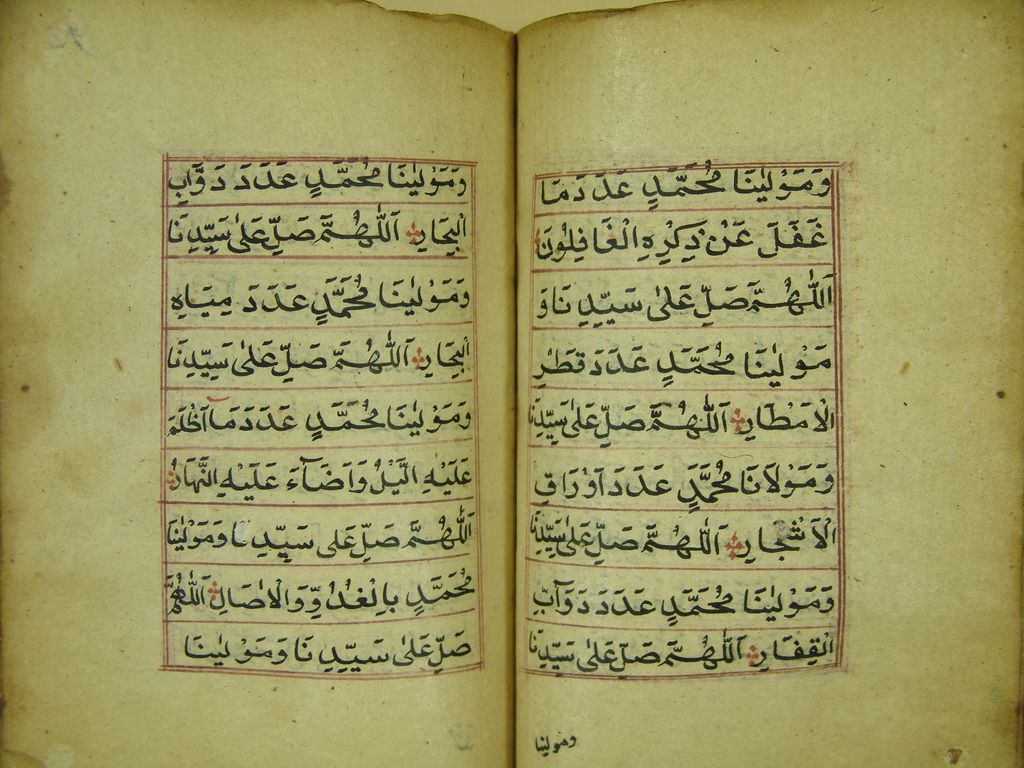 وَمَوْلٰينَا مُحَمَّدٍ عَدَدَ مَا
غَفَلَ عَنْ ذِكْرِهِ الْغَافِلُونَ
اَللّٰهُمَّ صَلِّ عَلٰى سَيِّدِنَا وَ
مَوْلٰينَا مُحَمَّدٍ عَدَدَ قَطْرِ
الْاَمْطَارِ اَللّٰهُمَّ صَلِّ عَلٰى سَيِّدِنَا
وَمَوْلَانَا مُحَمَّدٍ عَدَدَ اَوْرَاقِ
الْاَشْجَارِ اَللّٰهُمَّ صَلِّ عَلٰى سَيِّدِنَا
وَمَوْلٰينَا مُحَمَّدٍ عَدَدَ دَوَآبِّ
الْقِفَارِ اَللّٰهُمَّ صَلِّ عَلٰى سَيِّدِنَا
ومولينا
وَمَوْلٰينَا مُحَمَّدٍ عَدَدَ دَوَّابِ
الْبِحَارِ اَللّٰهُمَّ صَلِّ عَلٰى سَيِّدِنَا
وَمَوْلٰينَا مُحَمَّدٍ عَدَدَ مِيَاهِ
الْبِحَارِ اَللّٰهُمَّ صَلِّ عَلٰى سَيِّدِنَا
وَمَوْلٰينَا مُحَمَّدٍ عَدَدَ مَا اَظْلَمَ
عَلَيْهِ الَّيْلُ وَاَضَآءَ عَلَيْهِ النَّهَارُ
اَللّٰهُمَّ صَلِّ عَلٰى سَيِّدِنَا وَمَوْلٰينَا
مُحَمَّدٍ بِالْغُدُوِّ وَالْاٰصَالِ اَللّٰهُمَّ
صَلِّ عَلٰى سَيِّدِنَا وَمَوْلٰينَا